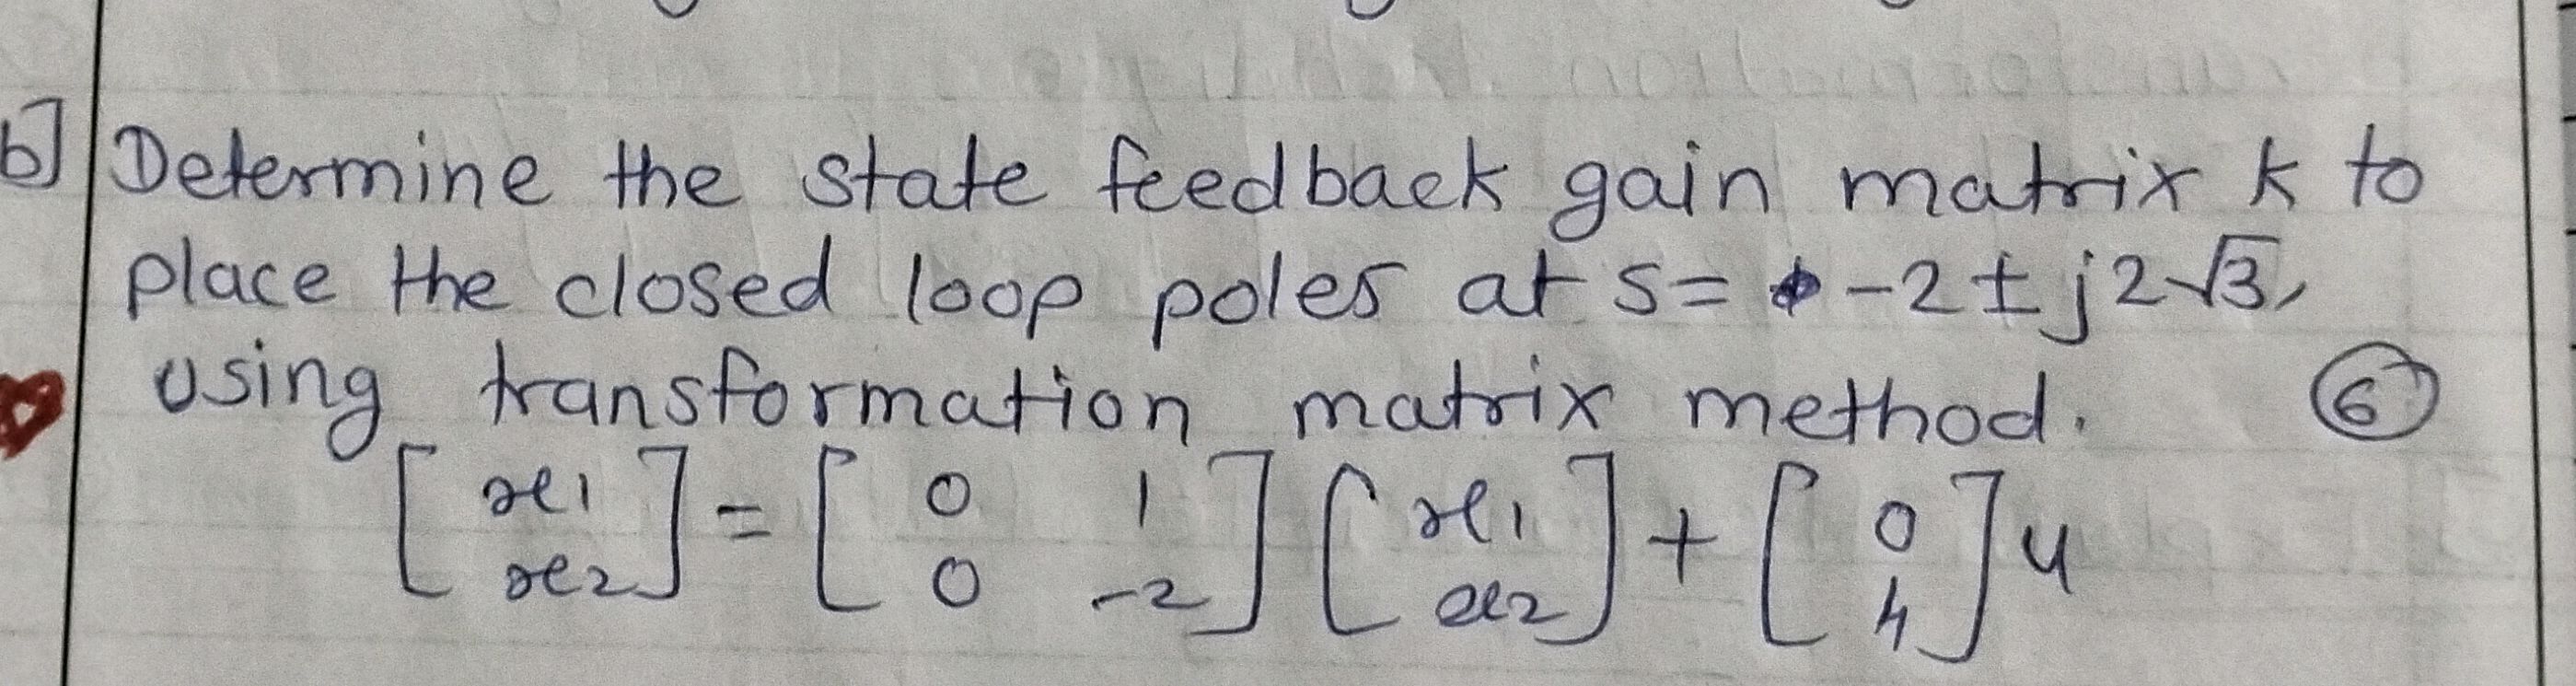 b] Determine the state feedback gain matrix k to
place the closed loop poles at s= -2 ± j2√3,
using transformation matrix method. 6
[x1 x2] = [0 1 0 -2] [x1 x2] + [0 4] u